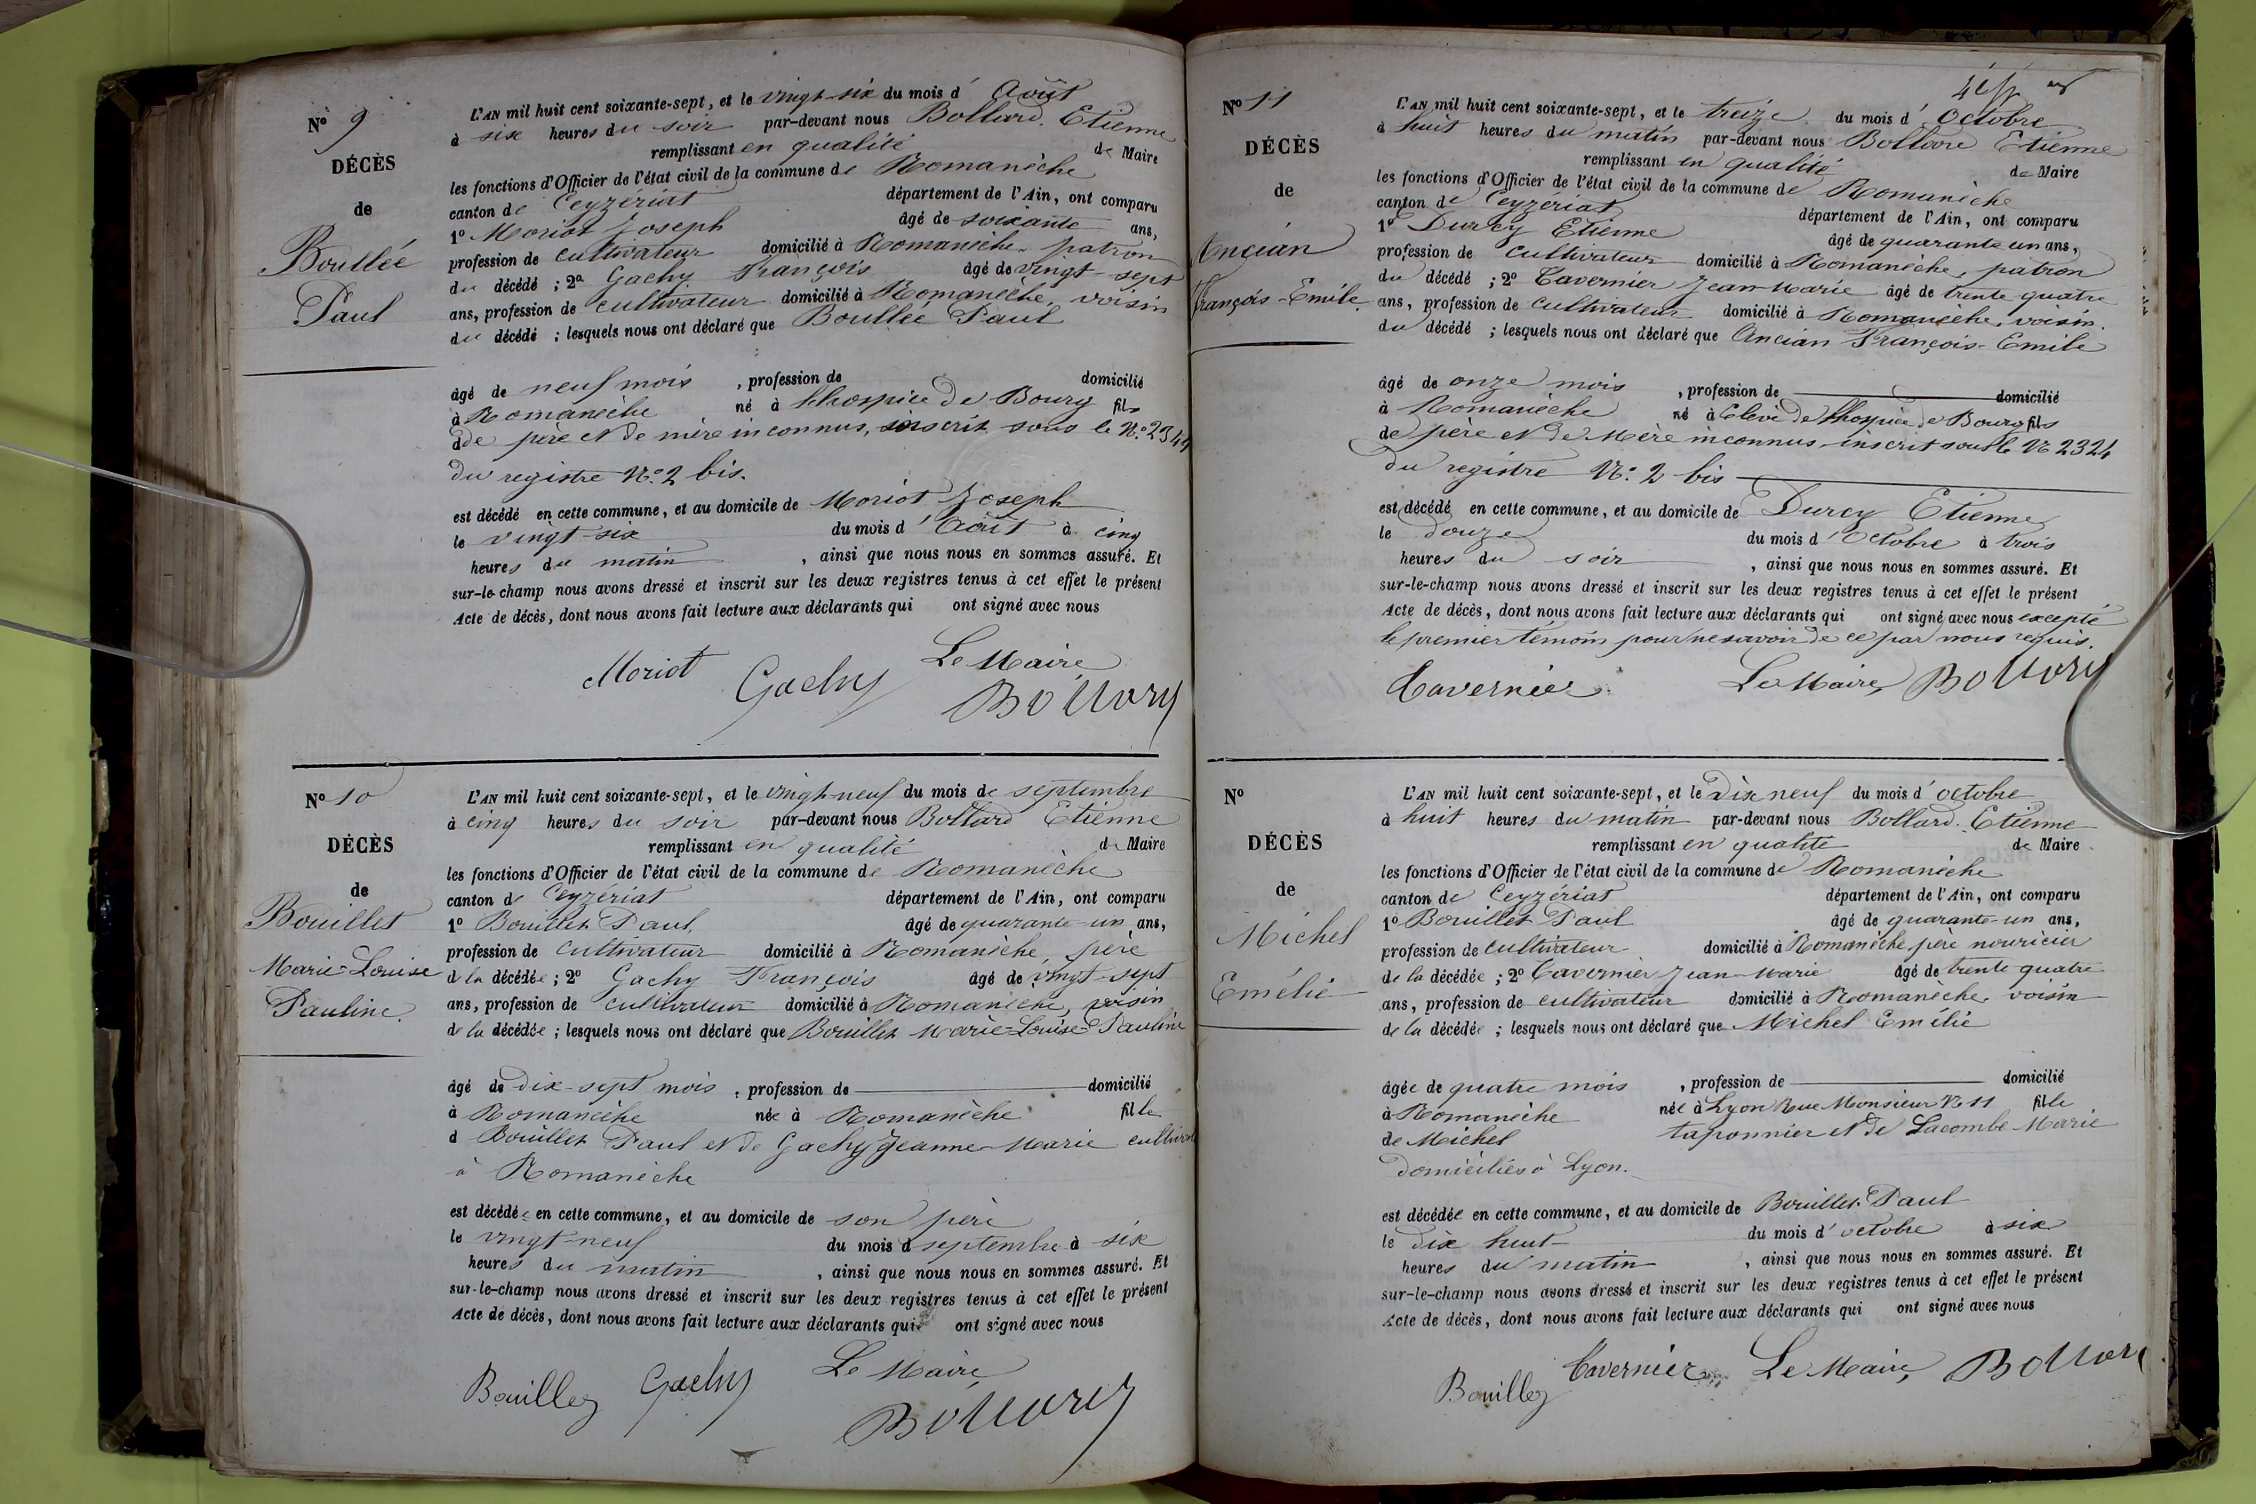 N° 9
DÉCÈS
de
Boullée
Paul
L'AN mil huit cent soixante-sept, et le vingt-six du mois d'Août
à six heures du soir par-devant nous Bollard Etienne
remplissant en qualité de Maire
les fonctions d'Officier de l'état civil de la commune de Romanèche
canton de Ceyzériat département de l'Ain, ont comparu
1° Moriot Joseph âgé de soixante ans,
profession de cultivateur domicilié à Romanèche, patron
du décédé ; 2° Gachy François âgé de vingt-sept
ans, profession de cultivateur domicilié à Romanèche, voisin
du décédé ; lesquels nous ont déclaré que Boullée Paul
âgé de neuf mois, profession de domicilié
à Romanèche né à l'hospice de Bourg fils
de père et de mère inconnus, inscrit sous le N°
du registre N° 2 bis.
est décédé en cette commune, et au domicile de Moriot Joseph
le vingt-six du mois d'Août à cinq
heures du matin, ainsi que nous nous en sommes assuré. Et
sur-le-champ nous avons dressé et inscrit sur les deux registres tenus à cet effet le présent
Acte de décès, dont nous avons fait lecture aux déclarants qui ont signé avec nous
Le Maire
Moriot Gachy Bollard
N° 10
DÉCÈS
de
Bouillet
Marie-Louise
Pauline
L'AN mil huit cent soixante-sept, et le vingt-neuf du mois de septembre
à cinq heures du soir par-devant nous Bollard Etienne
remplissant en qualité de Maire
les fonctions d'Officier de l'état civil de la commune de Romanèche
canton de Ceyzériat département de l'Ain, ont comparu
1° Bouillet Paul âgé de quarante-un ans,
profession de cultivateur domicilié à Romanèche, père
de la décédée ; 2° Gachy François âgé de vingt-sept
ans, profession de cultivateur domicilié à Romanèche, voisin
de la décédée ; lesquels nous ont déclaré que Bouillet Marie-Louise Pauline
âgé de dix-sept mois, profession de domicilié
à Romanèche née à Romanèche fille
d Bouillet Paul et de Gachy Jeanne-Marie
à Romanèche
est décédée en cette commune, et au domicile de son père
le vingt-neuf du mois d septembre à six
heures du matin, ainsi que nous nous en sommes assuré. Et
sur-le-champ nous avons dressé et inscrit sur les deux registres tenus à cet effet le présent
Acte de décès, dont nous avons fait lecture aux déclarants qui ont signé avec nous
Le Maire
Bouillez Gachy Bollard
N° 11
DÉCÈS
de
Ancian
François-Emile
L'AN mil huit cent soixante-sept, et le treize du mois d'Octobre
à huit heures du matin par-devant nous Bollard Etienne
remplissant en qualité de Maire
les fonctions d'Officier de l'état civil de la commune de Romanèche
canton de Ceyzériat département de l'Ain, ont comparu
1° Durey Etienne âgé de quarante un ans,
profession de cultivateur domicilié à Romanèche, patron
du décédé ; 2° Tavernier Jean-Marie âgé de trente quatre
ans, profession de cultivateur domicilié à Romanèche, voisin.
du décédé ; lesquels nous ont déclaré que Ancian François-Emile
âgé de onze mois, profession de domicilié
à Romanèche né à Elevé de l'hospice de Bourg fils
de père et de Mère inconnus inscrit sous le N° 2324
du registre N° 2 bis
est décédé en cette commune, et au domicile de Durey Etienne
le douze du mois d'Octobre à trois
heures du soir, ainsi que nous nous en sommes assuré. Et
sur-le-champ nous avons dressé et inscrit sur les deux registres tenus à cet effet le présent
Acte de décès, dont nous avons fait lecture aux déclarants qui ont signé avec nous excepté
le premier témoin pour ne savoir de ce par nous requis.
Tavernier Le Maire, Bollard
N°
DÉCÈS
de
Michel
Emélie
L'AN mil huit cent soixante-sept, et le Dix neuf du mois d'octobre
à huit heures du matin par-devant nous Bollard Etienne
remplissant en qualité de Maire
les fonctions d'Officier de l'état civil de la commune de Romanèche
canton de Ceyzériat département de l'Ain, ont comparu
1° Bouillet Paul âgé de quarante-un ans,
profession de cultivateur domicilié à Romanèche père nouricier
de la décédée ; 2° Tavernier Jean-Marie âgé de trente quatre
ans, profession de cultivateur domicilié à Romanèche voisin
de la décédée ; lesquels nous ont déclaré que Michel Emélie
âgée de quatre mois, profession de domicilié
à Romanèche née à Lyon Rue Monsieur N° 11 fille
de Michel taponnier et de Lacombe Marie
domiciliés à Lyon.
est décédée en cette commune, et au domicile de Bouillet Paul
le dix huit du mois d'octobre à six
heures du matin, ainsi que nous nous en sommes assuré. Et
sur-le-champ nous avons dressé et inscrit sur les deux registres tenus à cet effet le présent
Acte de décès, dont nous avons fait lecture aux déclarants qui ont signé avec nous
Bouillez Tavernier Le Maire, Bollard